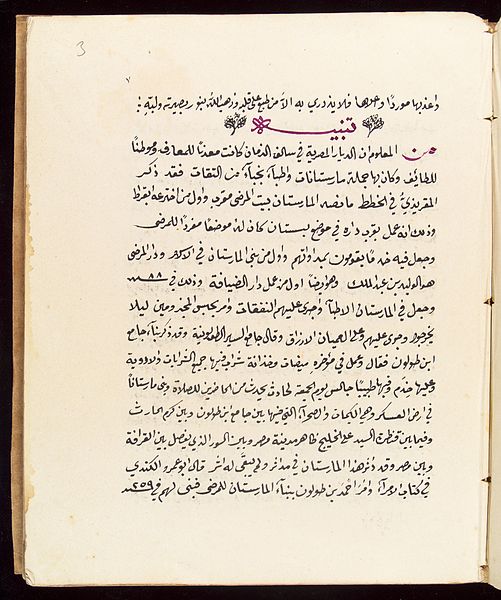 3
٧
واعذبها موردًا وحدها فلا يذدري به الا من طبع على قلبه وذهب الله بنور بصيرته ولبّه :
تنبيه
من المعلوم ان الديار المصرية في سالف الزمان كانت معدنًا للمعارف وموطنًا
للطائف وكان بها جملة مارستانات واطبآء نجبآء من الثقات فقد ذكر
المقريزي في الخطط ما نصه المارستان بيت المرضى معرب واول من اخترعه ابقراط
وذلك انه عمل بقرب داره في موضع بستان كان له موضعًا مفردًا للمرضى
وجعل فيه خدمًا يقومون بمداواتهم واول من بنى المارستان في الاسلام ودار المرضى
هو الوليد بن عبد الملك وهو ايضا اول من عمل دار الضيافة وذلك في ٨٨ سنه
وجعل في المارستان الاطبآء واجرى عليهم النفقات وامر بحبس المجذومين ليلا
يخرجوا واجرى عليهم وعلى العميان الارزاق وقال جامع السير الطولونية وقد ذكر بناء جامع
ابن طولون فقال وعمل في مؤخره ميضاة وخزانة شراب فيها جميع الشرابات والادوية
وعليها خدم وفيها طبيبًا جالس يوم الجمعة لحادث يحدث من الحاضرين للصلاة وبنى مارستانًا
في ارض العسكر وهي الكيمان والصحرآء التي فيها بين جامع بن طولون وبين كوم الجارح
وفيما بين قنطرة السيد على الخليج ظاهر مدينة مصر وبين السور الذي يفصل بين القرافة
وبين مصر وقد دثر هذا المارستان في ما دثر ولم يبقى له اثر قال ابو عمرو الكندي
في كتاب الامرآء وامر احمد بن طولون ببنآء المارستان للمرضى فبنى لهم في ٢٥٩ سنه